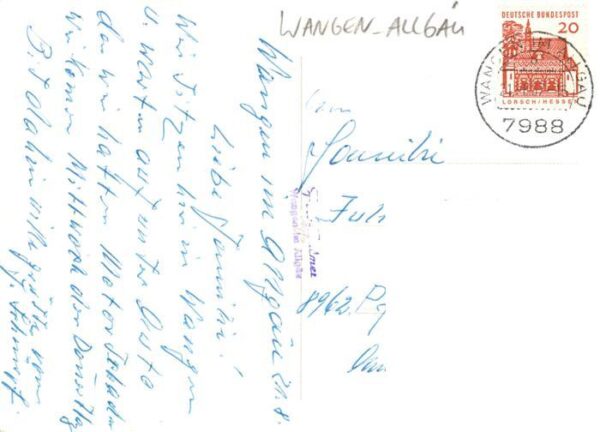 WANGEN-ALLGÄU
DEUTSCHE BUNDESPOST
20
LORSCH/HESSEN
WANGEN IM ALLGÄU
7988
Wangen im Allgäu 21.8.
Liebe Familie!
Wir sitzen hier in Wangen
u. warten auf unser Auto
den wir hatten Motorschaden
Wir kommen Mittwoch oder Donnerstag
Bis dahin viele Grüße von
An
Familie
8962
Wangen im Allgäu